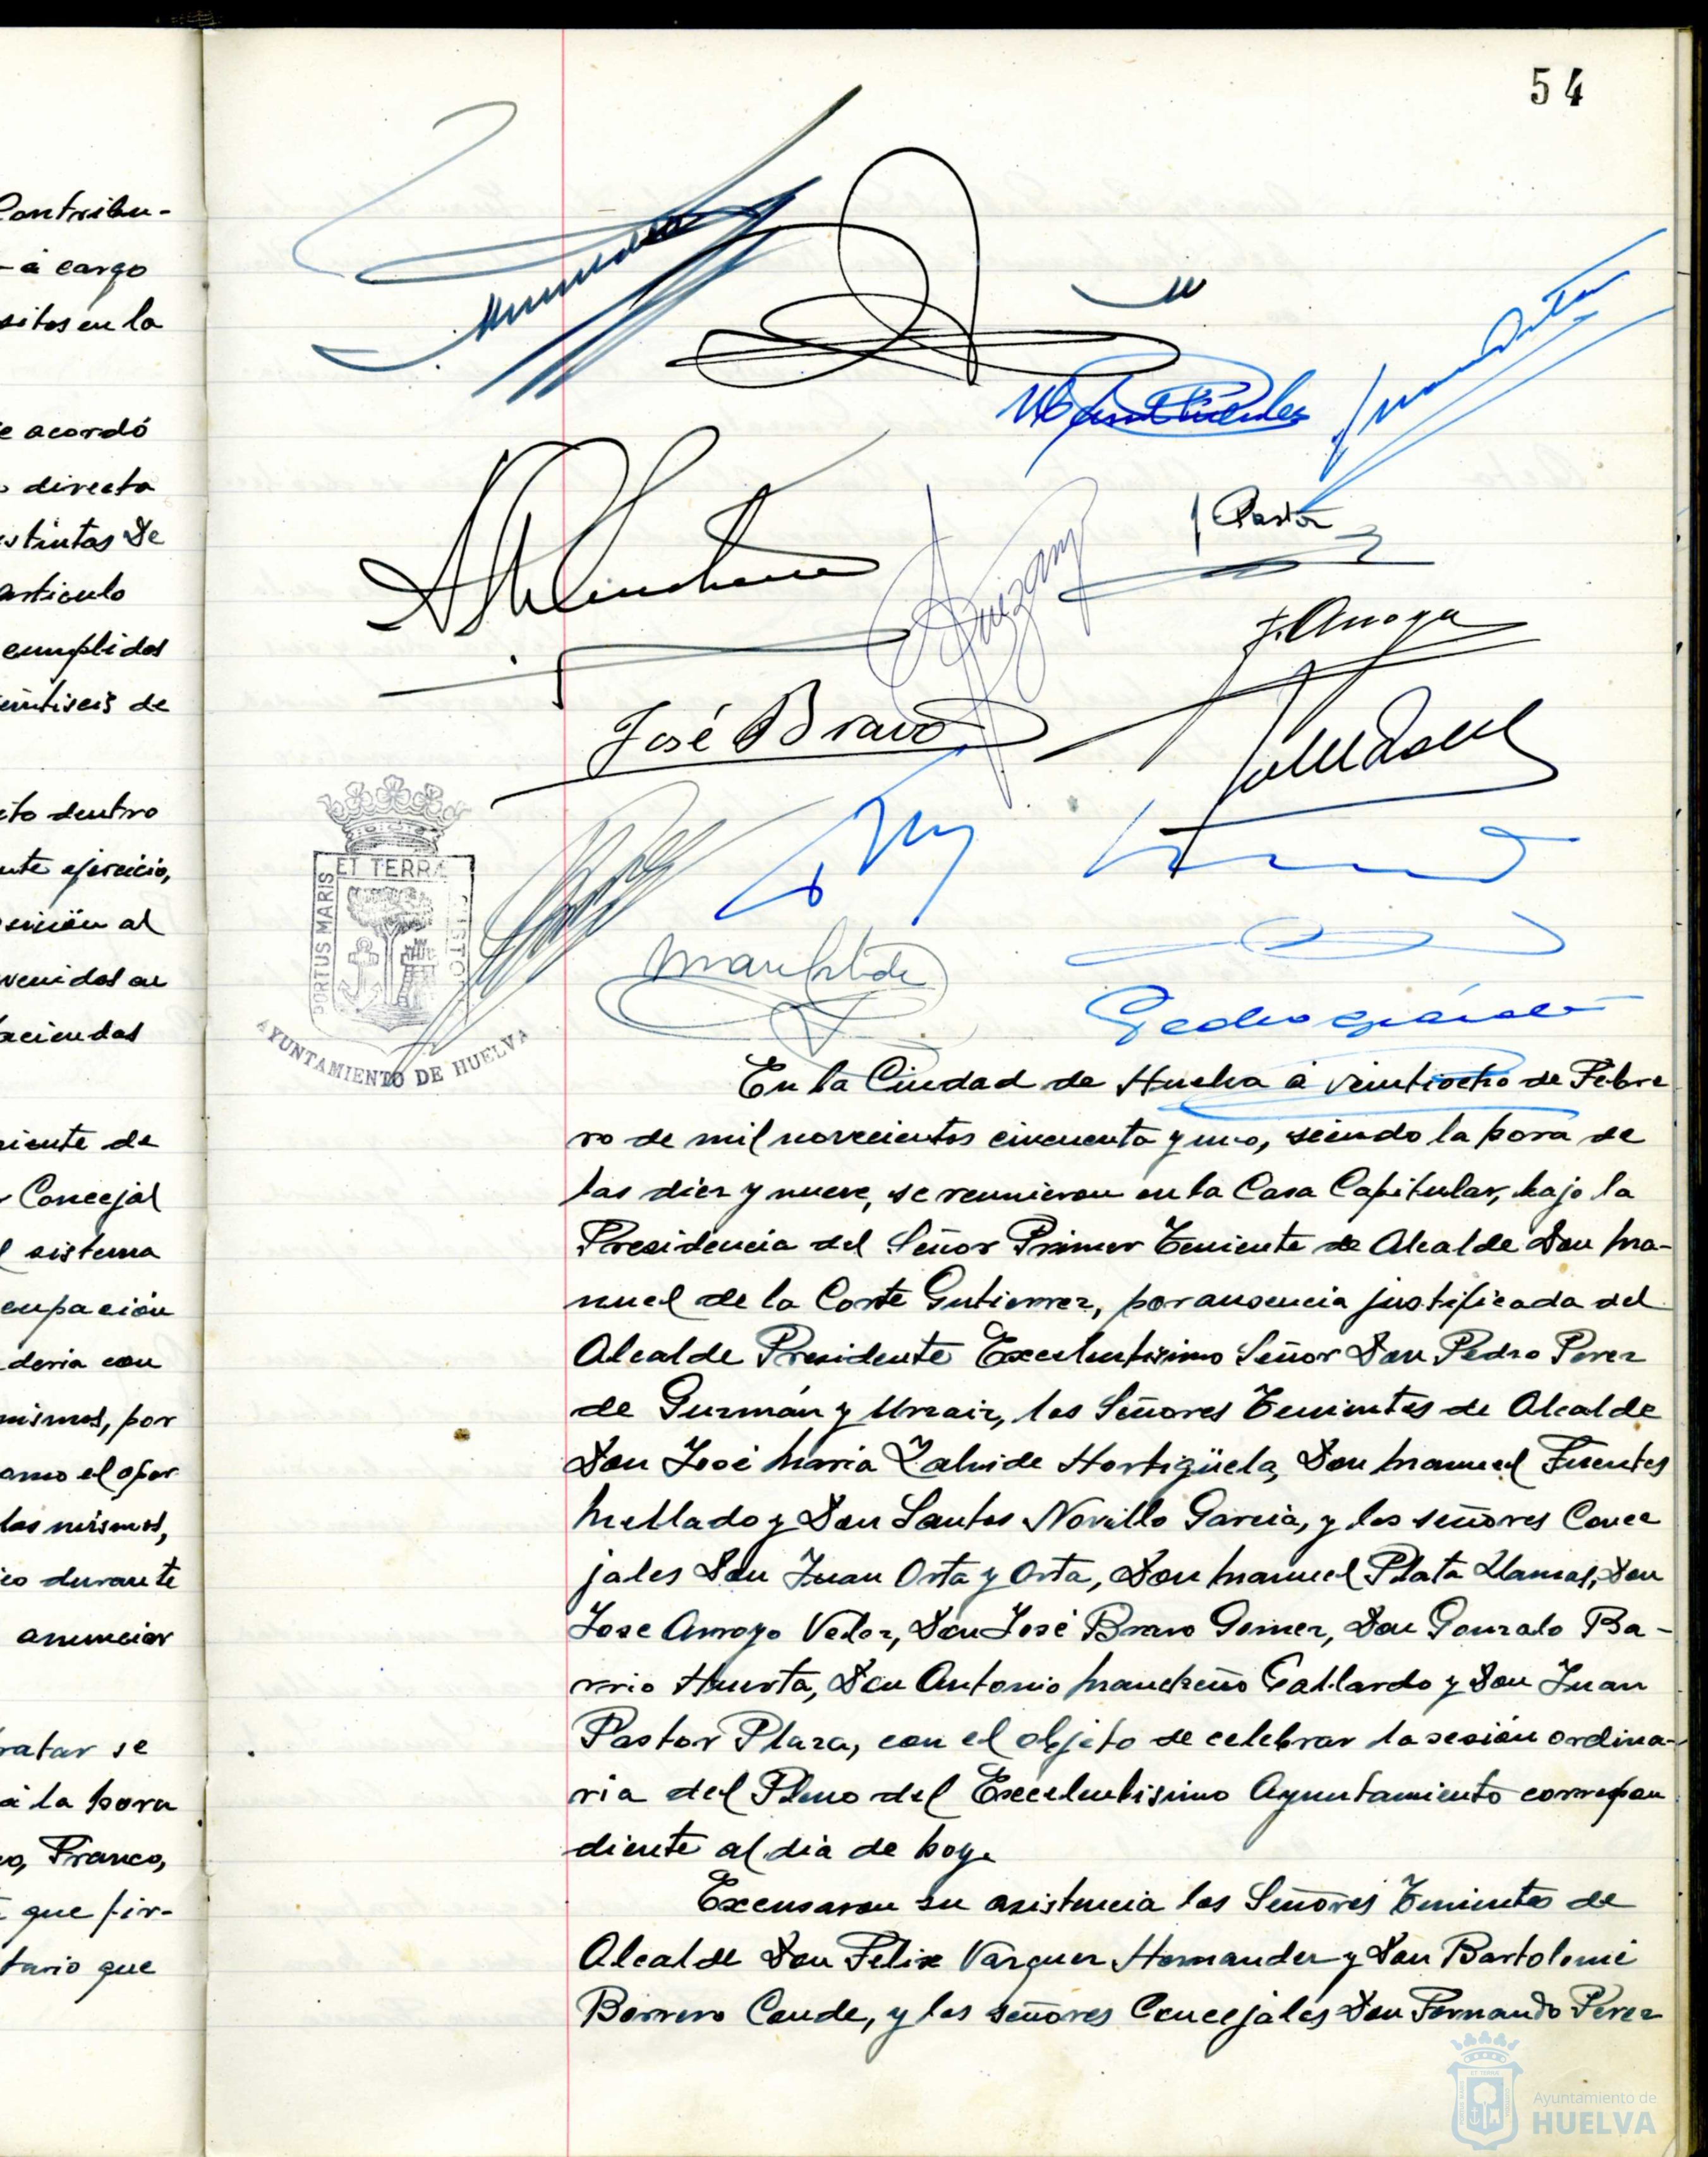 54
Contribu-
- á cargo
sitos en la
e acordó
o directa
stintas De
articulo
cumplidos
eintiseis de
eto dentro
nte ejercicio,
venidos en
haciendas
niente de
r Concejal
l sistema
cupación
deria con
mismos, por
omo el opor
los mismos,
ico durante
anunciar
ratar se
á la hora
co, Franco,
que fir-
tario que
J. Pastor
J. Arroyo
José Bravo
PORTUS MARIS ET TERRÆ CUSTODIA
AYUNTAMIENTO DE HUELVA
En la Ciudad de Huelva á veintiocho de Febre
ro de mil novecientos cincuenta y uno, siendo la hora de
las diez y nueve, se reunieron en la Casa Capitular, bajo la
Presidencia del Señor Primer Teniente de Alcalde Don Ma-
nuel de la Corte Gutierrez, por ausencia justificada del
Alcalde Presidente Excelentisimo Señor Don Pedro Perez
de Guzmán y Urzaiz, los Señores Tenientes de Alcalde
Don José Maria Zalvide Hortigüela, Don Manuel Fuentes
Mellado y Don Santos Novillo Garcia, y los señores Conce
jales Don Juan Orta y Orta, Don Manuel Plata Llamas, Don
Jose Arroyo Veloz, Don José Bravo Gomez, Don Gonzalo Ba-
rrio Huerta, Don Antonio Mancheño Gallardo y Don Juan
Pastor Plaza, con el objeto de celebrar la sesión ordina-
ria del Pleno del Excelentisimo Ayuntamiento correspon
diente al dia de hoy.
Excusaron su asistencia los Señores Tenientes de
Alcalde Don Felix Vazquez Hernandez y Don Bartolomé
Borrero Conde, y los señores Concejales Don Fernando Perez
Ayuntamiento de
HUELVA